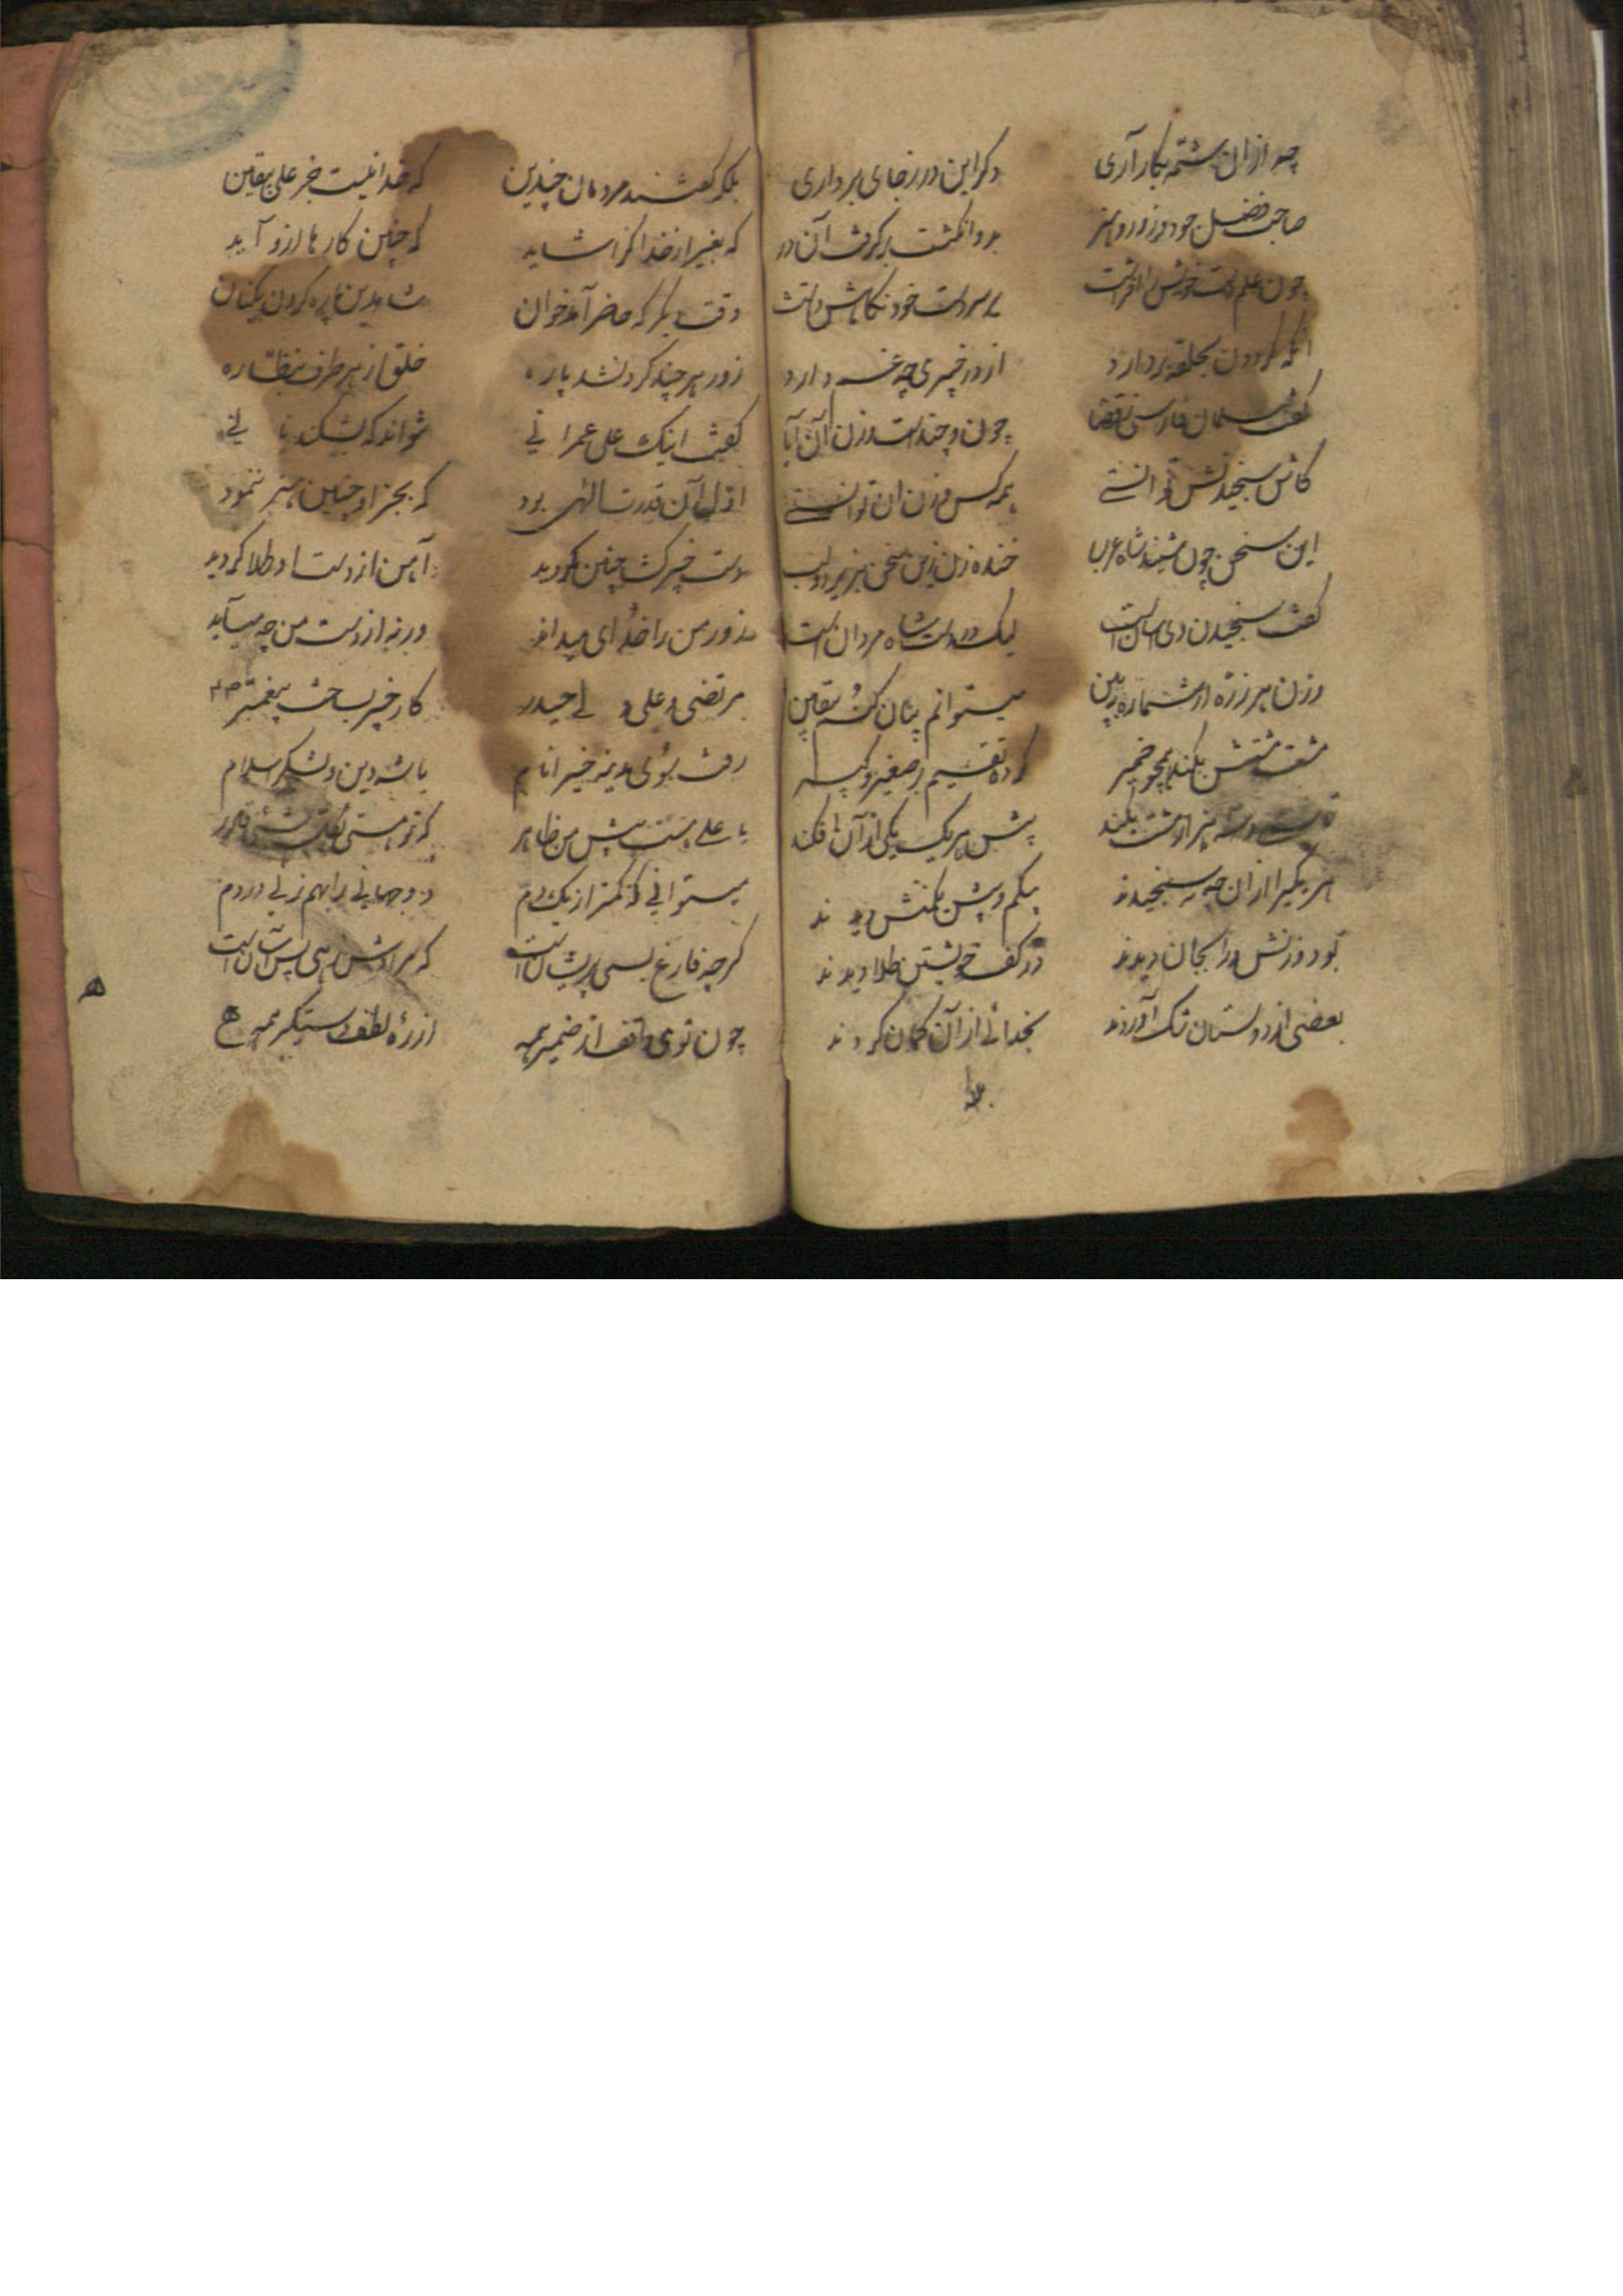 چه ازان شتمه بکار آری دگر این در ز جای برداری
صاحب فضل جود و زور و هنر بدو انگشت برگرفت آن در
چون علم دست خویش را افراشت سر دست خود نگاهش داشت
آنکه گردون بحلقه بردارد از در خیبری چه غم دارد
گفت سلمان فارسی چون و چند است وزن آن آیا
کاش سنجیدنش توانستی همه کس وزن آن توانستی
این سخن چون شنید شاه عرب خنده زن زین سخن
گفت سنجیدن وی آسان است لیک در دست شاه مردان است
وزن هر ذره از شماره ببین میتوانم بیان کنم بیقین
مشت مشتش بکند همچو خمیر کرده تقسیم بر صغیر و کبیر
بکند پیش هر یک یکی از آن افکند
هر یکی را ازان چه سنجیدند بیکم و بیش یکمنش دیدند
بود وزنش ورا بجان دیدند در کف خویشتن طلا دیدند
بعضی از دوستان شک آوردند بخدائی از آن گمان کردند
بلکه گفتند مردمان چندین که خدا نیست جز علی بیقین
که بغیر از خدا کرا شاید که چنین کارها ازو آید
وقت دیگر که حاضر آمد خوان پاره کردن یکنان
زور هر چند کرد نشد پاره خلق از هر طرف بنظاره
گفت اینک علی عمرانی نتواند که بشکند نانی
اول آن قدرت الهی بود که بجز او چنین هنر ننمود
دست خیبر گشا چنین گردید آهن از دست او طلا گردید
زور من را خدای میداند ورنه از دست من چه میآید
مرتضی و علی و لے حیدر کار خیبر بساخت پیغمبر
رفت بسوی مدینه خیر انام با شه دین و لشکر اسلام
یا علی هست پیش من ظاهر که تو هستی
میتوانی که کمتر از یک دم دو جهانی را بهم زنی در دم
گرچه فارغ بسی پریشان است که مرادش
چون توی واقف از ضمیر همه از ره لطف دستگیر همه